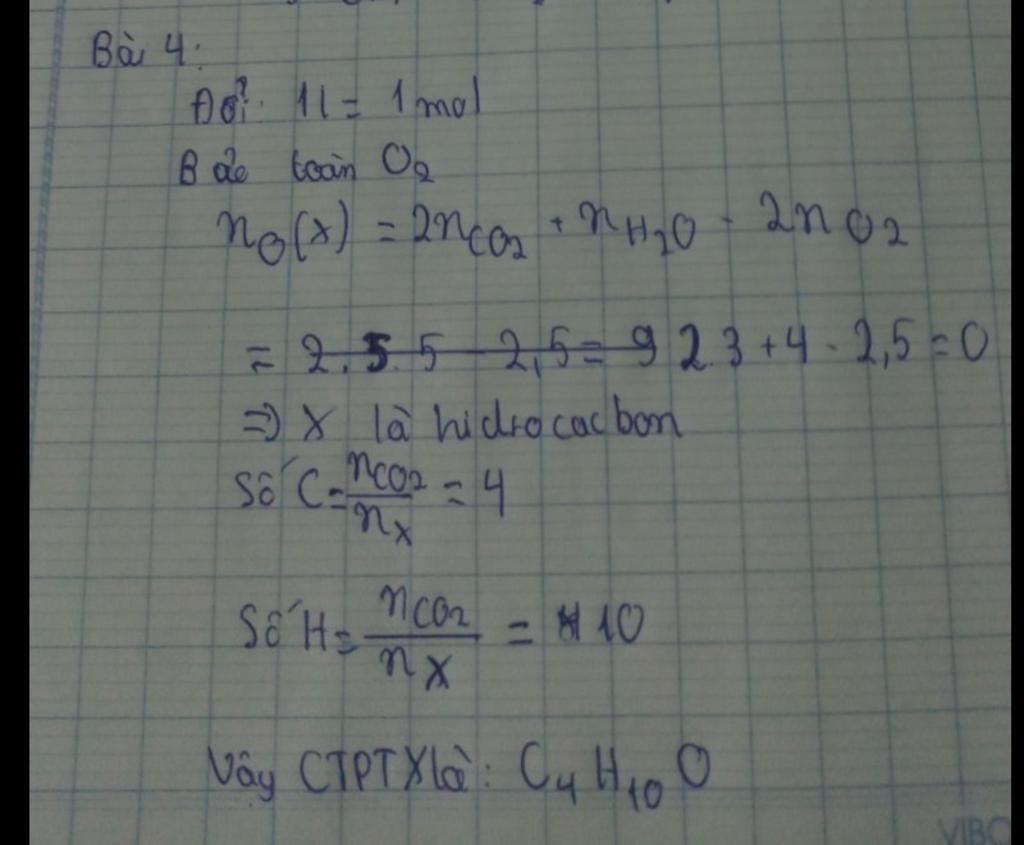 Bài 4:
Đổi: 1l = 1 mol
B ảo toàn O2
nO(X) = 2nCO2 + nH2O - 2nO2
= 2. 5. 5 - 2,5 = 9 2.3 + 4 - 2,5 = 0
=> X là hidrocacbon
Số C = nCO2/nX = 4
Số H = nCO2/nX = 10
Vậy CTPT X là: C4H10O